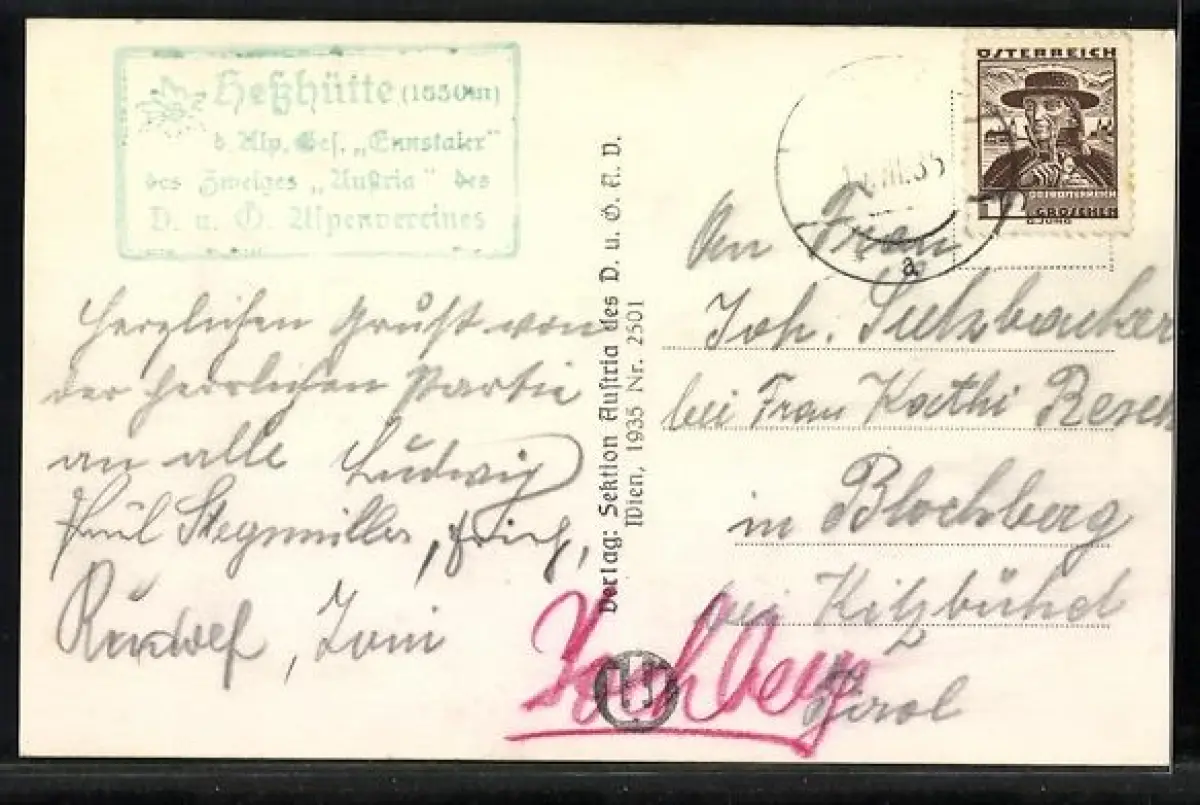 Heßhütte (1650m)
d. Alp. Ges. „Ennstaler"
des Zweiges „Austria" des
D. u. Ö. Alpenvereines
Herzlichen Gruß von
der herrlichen Partie
an alle Ludwig
Paul Stegmüller, Erich,
Rudolf, Toni
Verlag: Sektion Austria des D. u. Ö. A. V.
Wien, 1935 Nr. 2501
ÖSTERREICH
12 GROSCHEN
G. JUNG
VIII.35
a
An Frau
Joh. Sulzbacher
bei Frau Kathi Resch
in Blochberg
bei Kitzbühel
Tirol
Jochberg